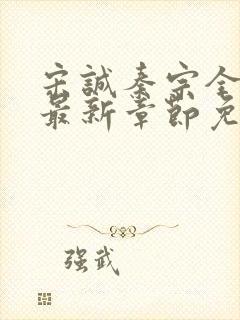 宋誠秦宗全
最新章節免
强武